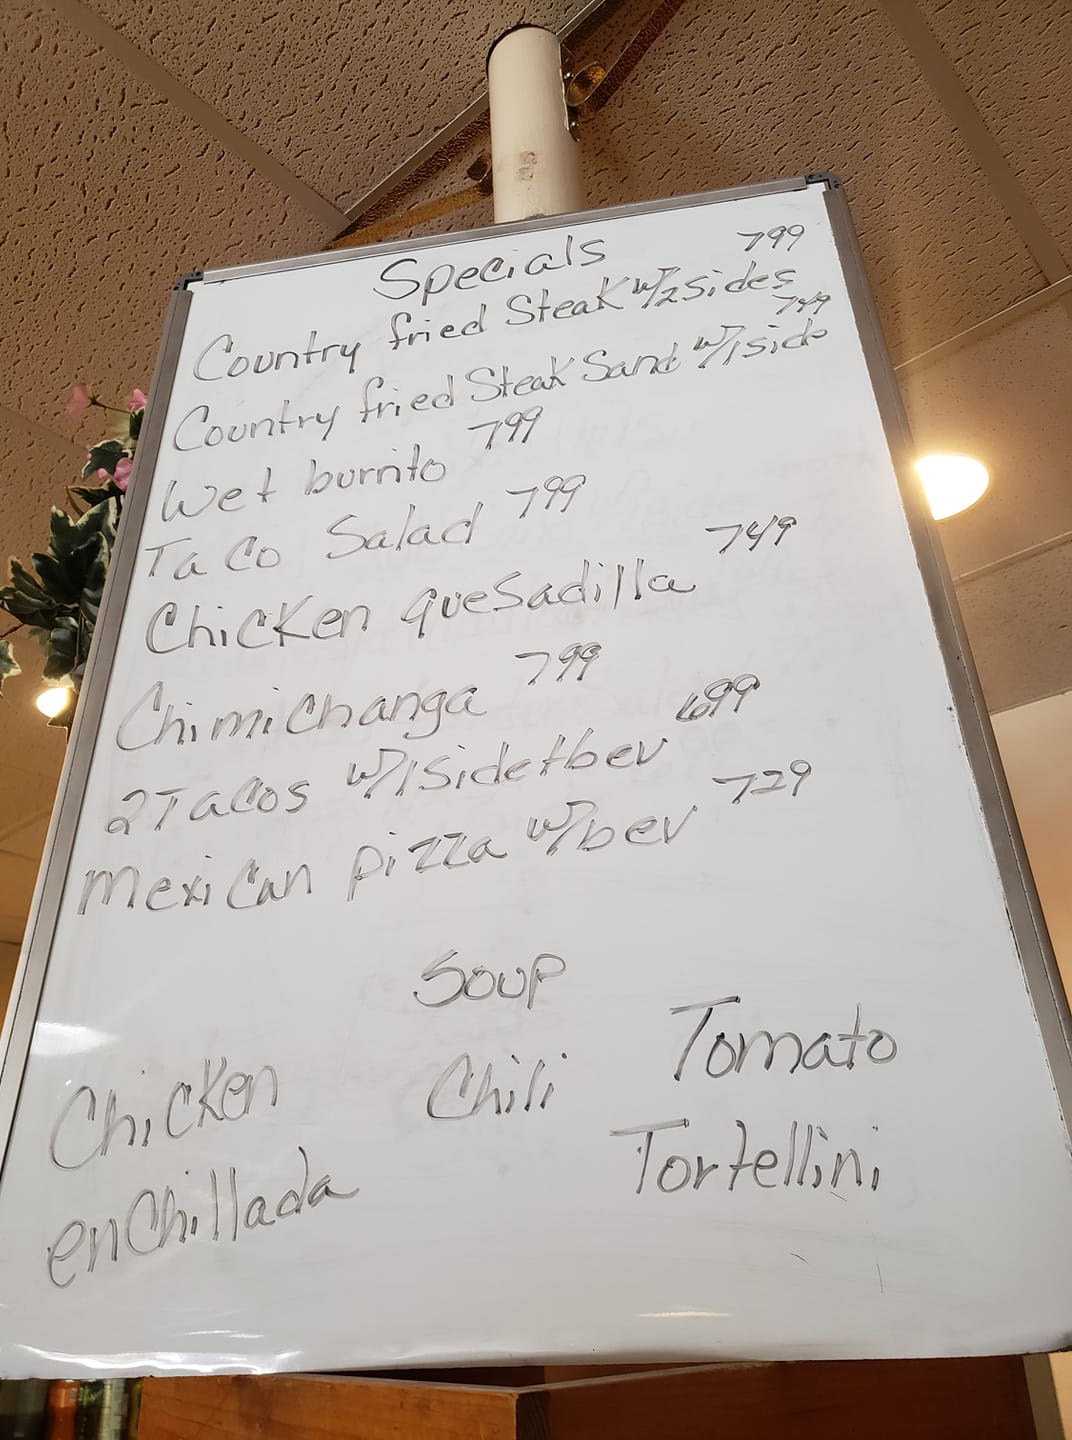 Specials
Country fried Steak w/2sides 799
Country fried Steak Sand w/1side 749
Wet burrito 799
Taco Salad 799
Chicken quesadilla 749
Chimichanga 799
2Tacos w/1side+bev 699
Mexican pizza w/bev 729
Soup
Chicken Chili Tomato
enchillada Tortellini